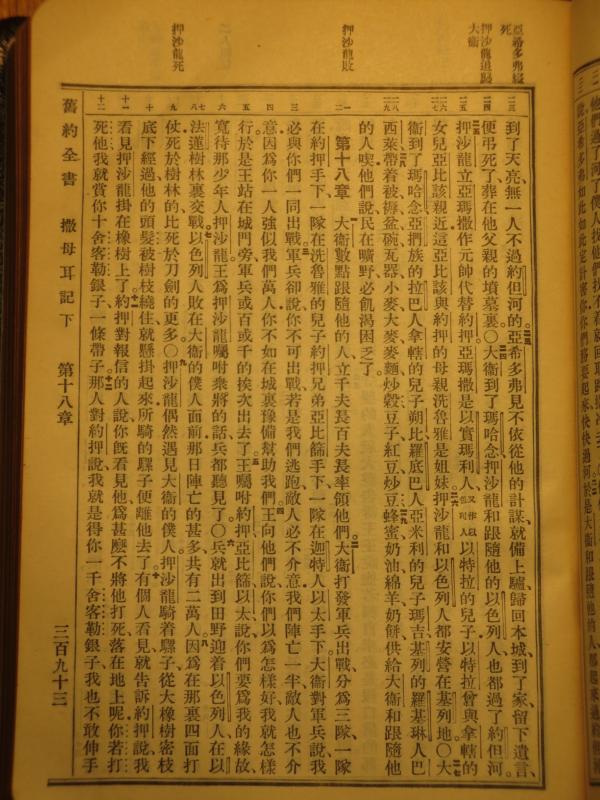 亞希多弗縊死
押沙龍追襲大衛
押沙龍敗
押沙龍死
到了天亮無一人不過約但河的亞希多弗見不依從他的計謀就備上驢歸回本城到了家留下遺言
便弔死了葬在他父親的墳墓裏○大衛到了瑪哈念押沙龍和跟隨他的以色列人也都過了約但河
押沙龍立亞瑪撒作元帥代替約押亞瑪撒是以實瑪利人又作以色列人以特拉的兒子以特拉曾與拿轄的
女兒亞比該親近這亞比該與約押的母親洗魯雅是姐妹押沙龍和以色列人都安營在基列地○大
衛到了瑪哈念亞捫族的拉巴人拿轄的兒子朔比羅底巴人亞米利的兒子瑪吉基列的羅基琳人巴
西萊帶着被褥盆碗瓦器小麥大麥麥麵炒穀豆子紅豆炒豆蜂蜜奶油綿羊奶餅供給大衛和跟隨他
的人喫他們說民在曠野必飢渴困乏了
第十八章 大衛數點跟隨他的人立千夫長百夫長率領他們大衛打發軍兵出戰分為三隊一隊
在約押手下一隊在洗魯雅的兒子約押兄弟亞比篩手下一隊在迦特人以太手下大衛對軍兵說我
必與你們一同出戰軍兵卻說你不可出戰若是我們逃跑敵人必不介意我們陣亡一半敵人也不介
意因為你一人強似我們萬人你不如在城裏豫備幫助我們王向他們說你們以為怎樣好我就怎樣
行於是王站在城門旁軍兵或百或千的挨次出去了王囑咐約押亞比篩以太說你們要為我的緣故
寬待那少年人押沙龍王為押沙龍囑咐衆將的話兵都聽見了○兵就出到田野迎着以色列人在以
法蓮樹林裏交戰以色列人敗在大衛的僕人面前那日陣亡的甚多共有二萬人因為在那裏四面打
仗死於樹林的比死於刀劍的更多○押沙龍偶然遇見大衛的僕人押沙龍騎着騾子從大橡樹密枝
底下經過他的頭髮被樹枝繞住就懸掛起來所騎的騾子便離他去了有個人看見就告訴約押說我
看見押沙龍掛在橡樹上了約押對報信的人說你旣看見他為甚麼不將他打死落在地上呢你若打
死他我就賞你十舍客勒銀子一條帶子那人對約押說我就是得你一千舍客勒銀子我也不敢伸手
舊約全書 撒母耳記下 第十八章 三百九十三